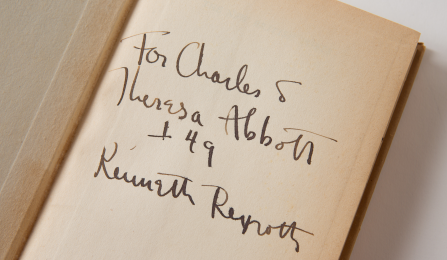 For Charles &
Theresa Abbott
1 49
Kenneth Rexroth